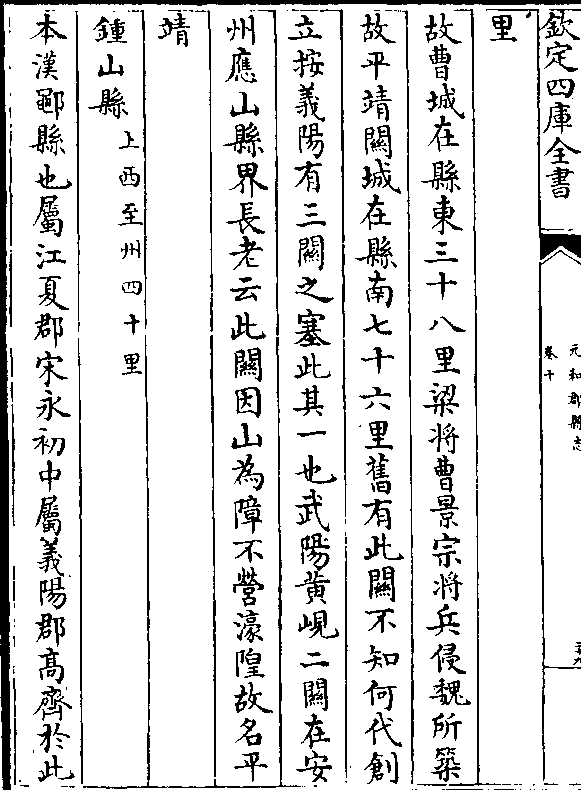 欽定四庫全書
元和郡縣志
卷十
里
故曹城在縣東三十八里梁將曹景宗將兵侵魏所築
故平靖闗城在縣南七十六里舊有此闗不知何代創
立按義陽有三闗之塞此其一也武陽黄峴二闗在安
州應山縣界長老云此闗因山為障不營濠隍故名平
靖
鍾山縣上西至州四十里
本漢鄳縣也屬江夏郡宋永初中屬義陽郡髙齊於此